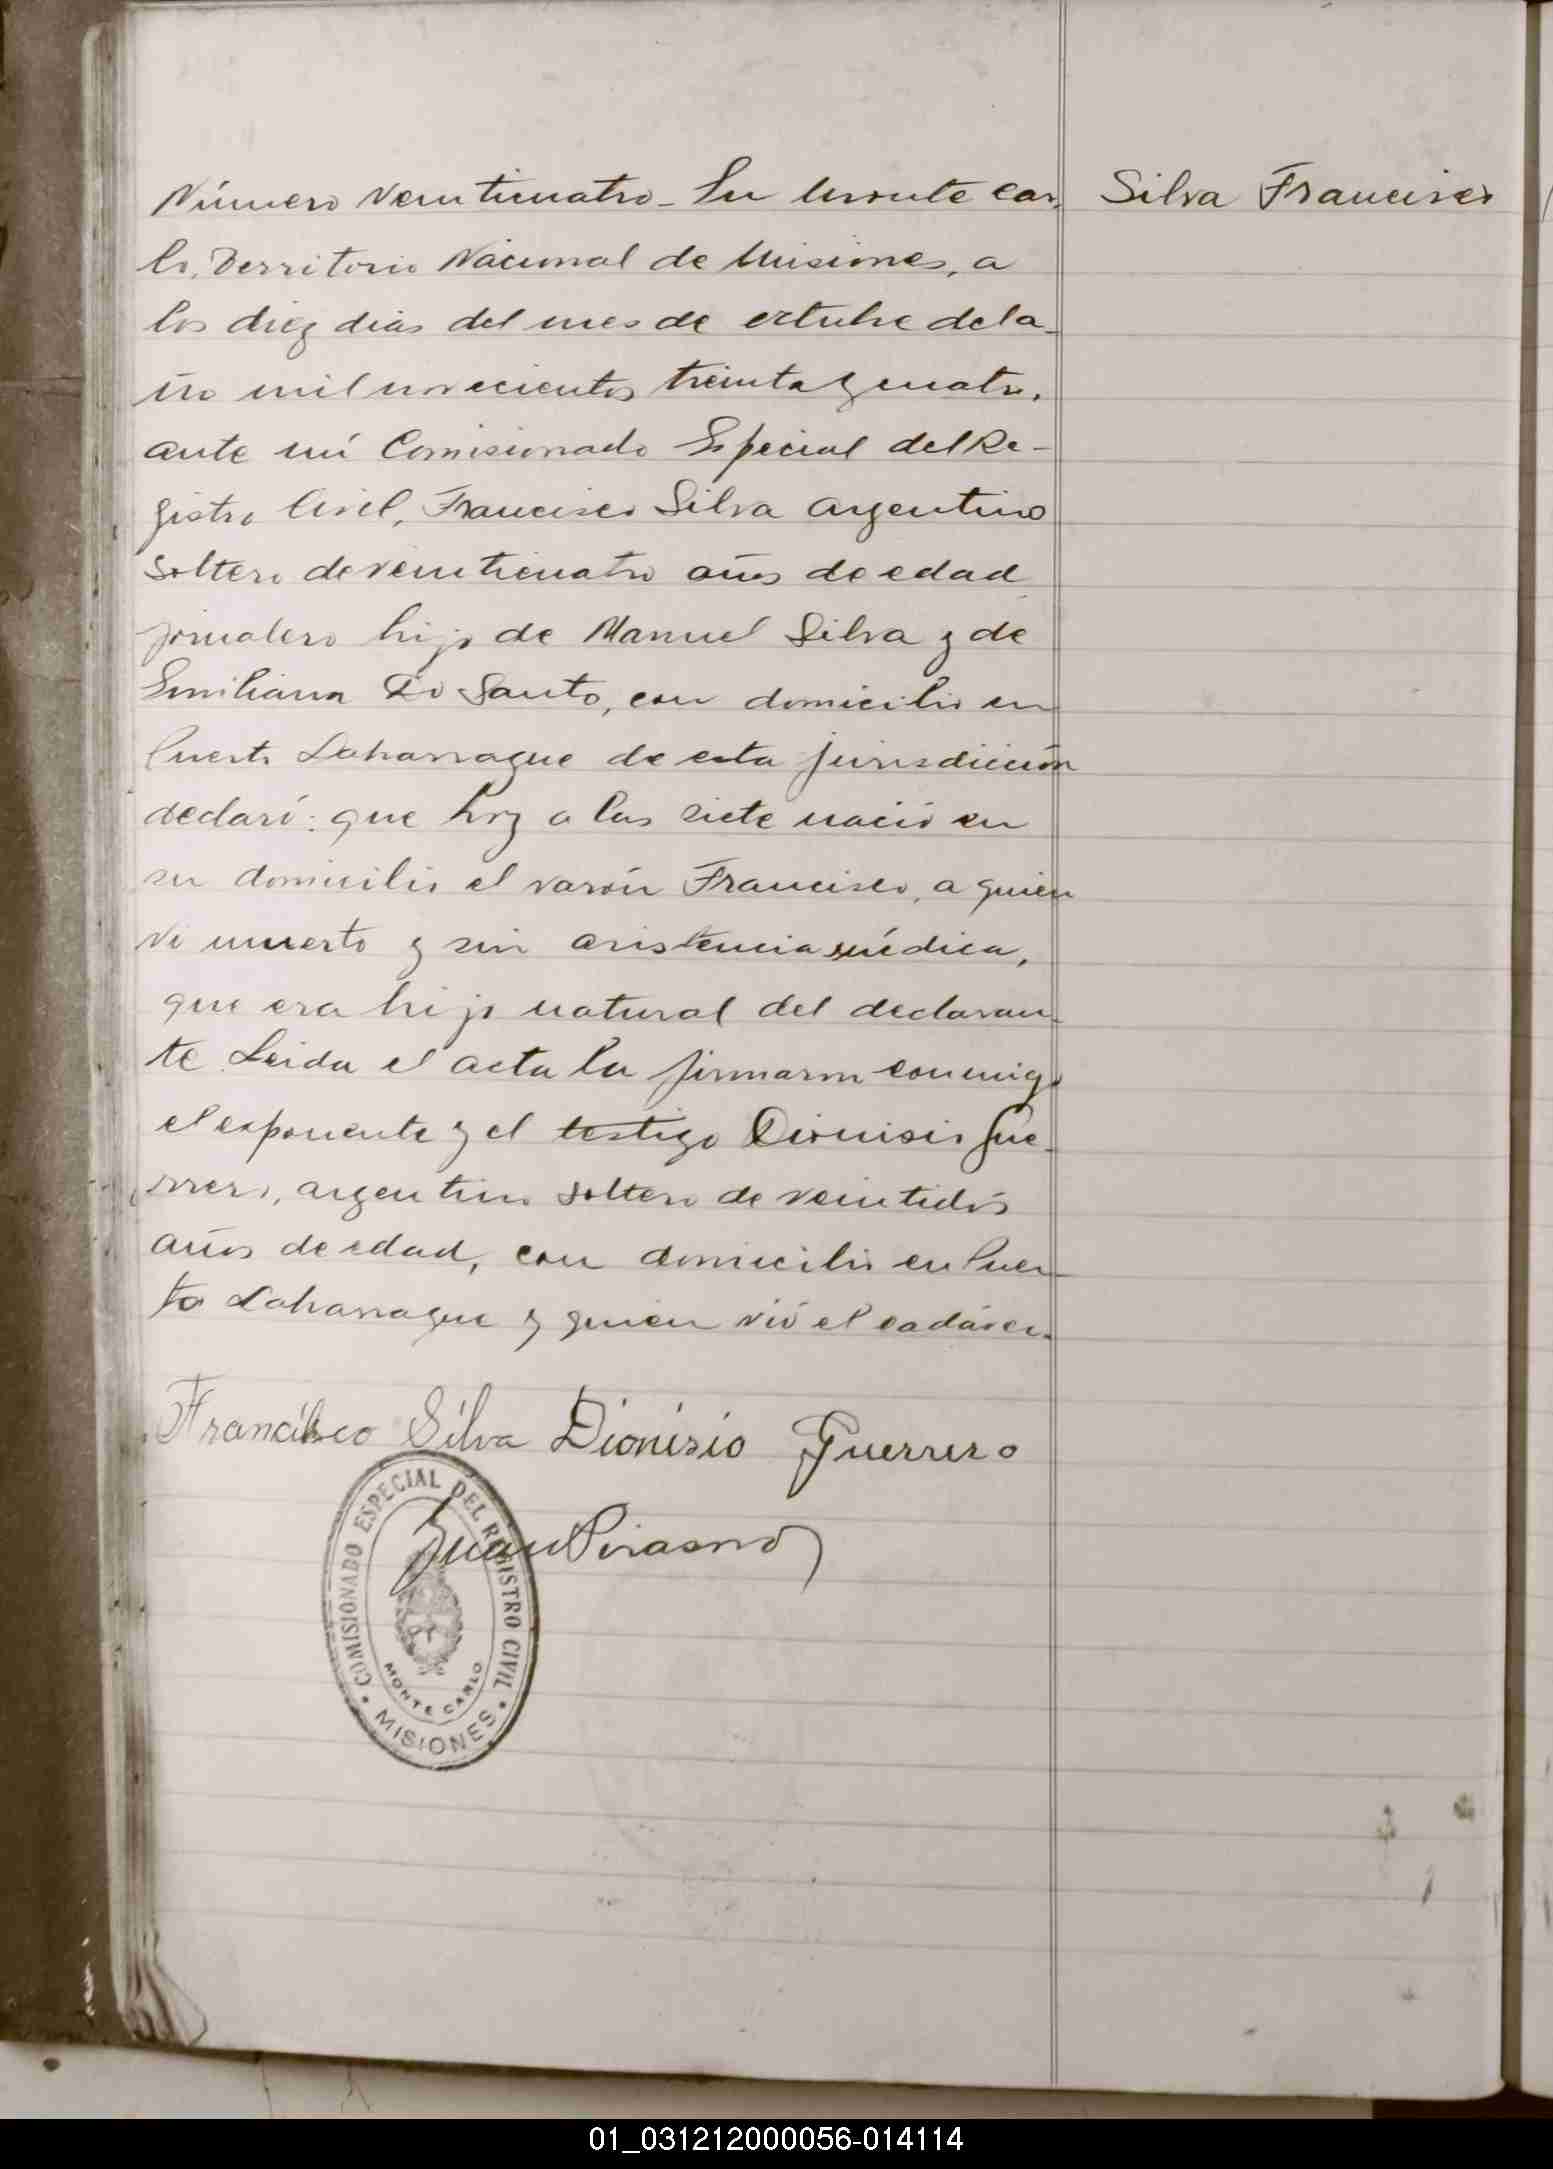 Número veinticuatro - En Monte Car-
lo, Territorio Nacional de Misiones, a
los diez dias del mes de octubre del a-
ño mil novecientos treinta y cuatro,
ante mí Comisionado Especial del Re-
gistro Civil, Francisco Silva argentino
soltero de veinticuatro años de edad
jornalero hijo de Manuel Silva y de
Emiliana Do Santo, con domicilio en
Puerto Laharrague de esta jurisdicción
declaró: que hoy a las siete nació en
su domicilio el varón Francisco, a quien
vi muerto y sin asistencia médica,
que era hijo natural del declaran-
te. Leida el acta la firmaron conmigo
el exponente y el testigo Dionisio Gue-
rrero, argentino soltero de veintidós
años de edad, con domicilio en Puer-
to Laharrague y quien vió el cadáver.
Silva Francisco
Francisco Silva Dionisio Guerrero
Juan
COMISIONADO ESPECIAL DEL REGISTRO CIVIL
MONTE CARLO
MISIONES
01_031212000056-014114